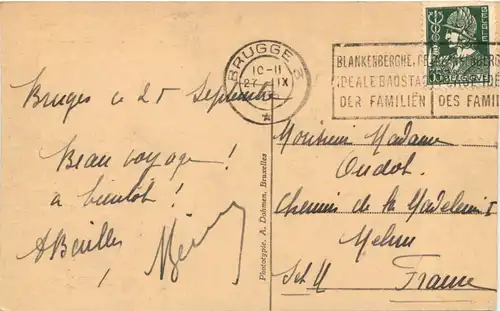 BRUGGE 3
10-11
27 IX
BLANKENBERGHE
IDEALE BADSTAD
DER FAMILIËN DES FAMI
Bruges ce 25 Septembre
Beau voyage !
a bientot !
Phototypie. A. Dohmen, Bruxelles
Monsieur Madame
Oudot
Chemin de la Madeleine
Melun
S et M
France